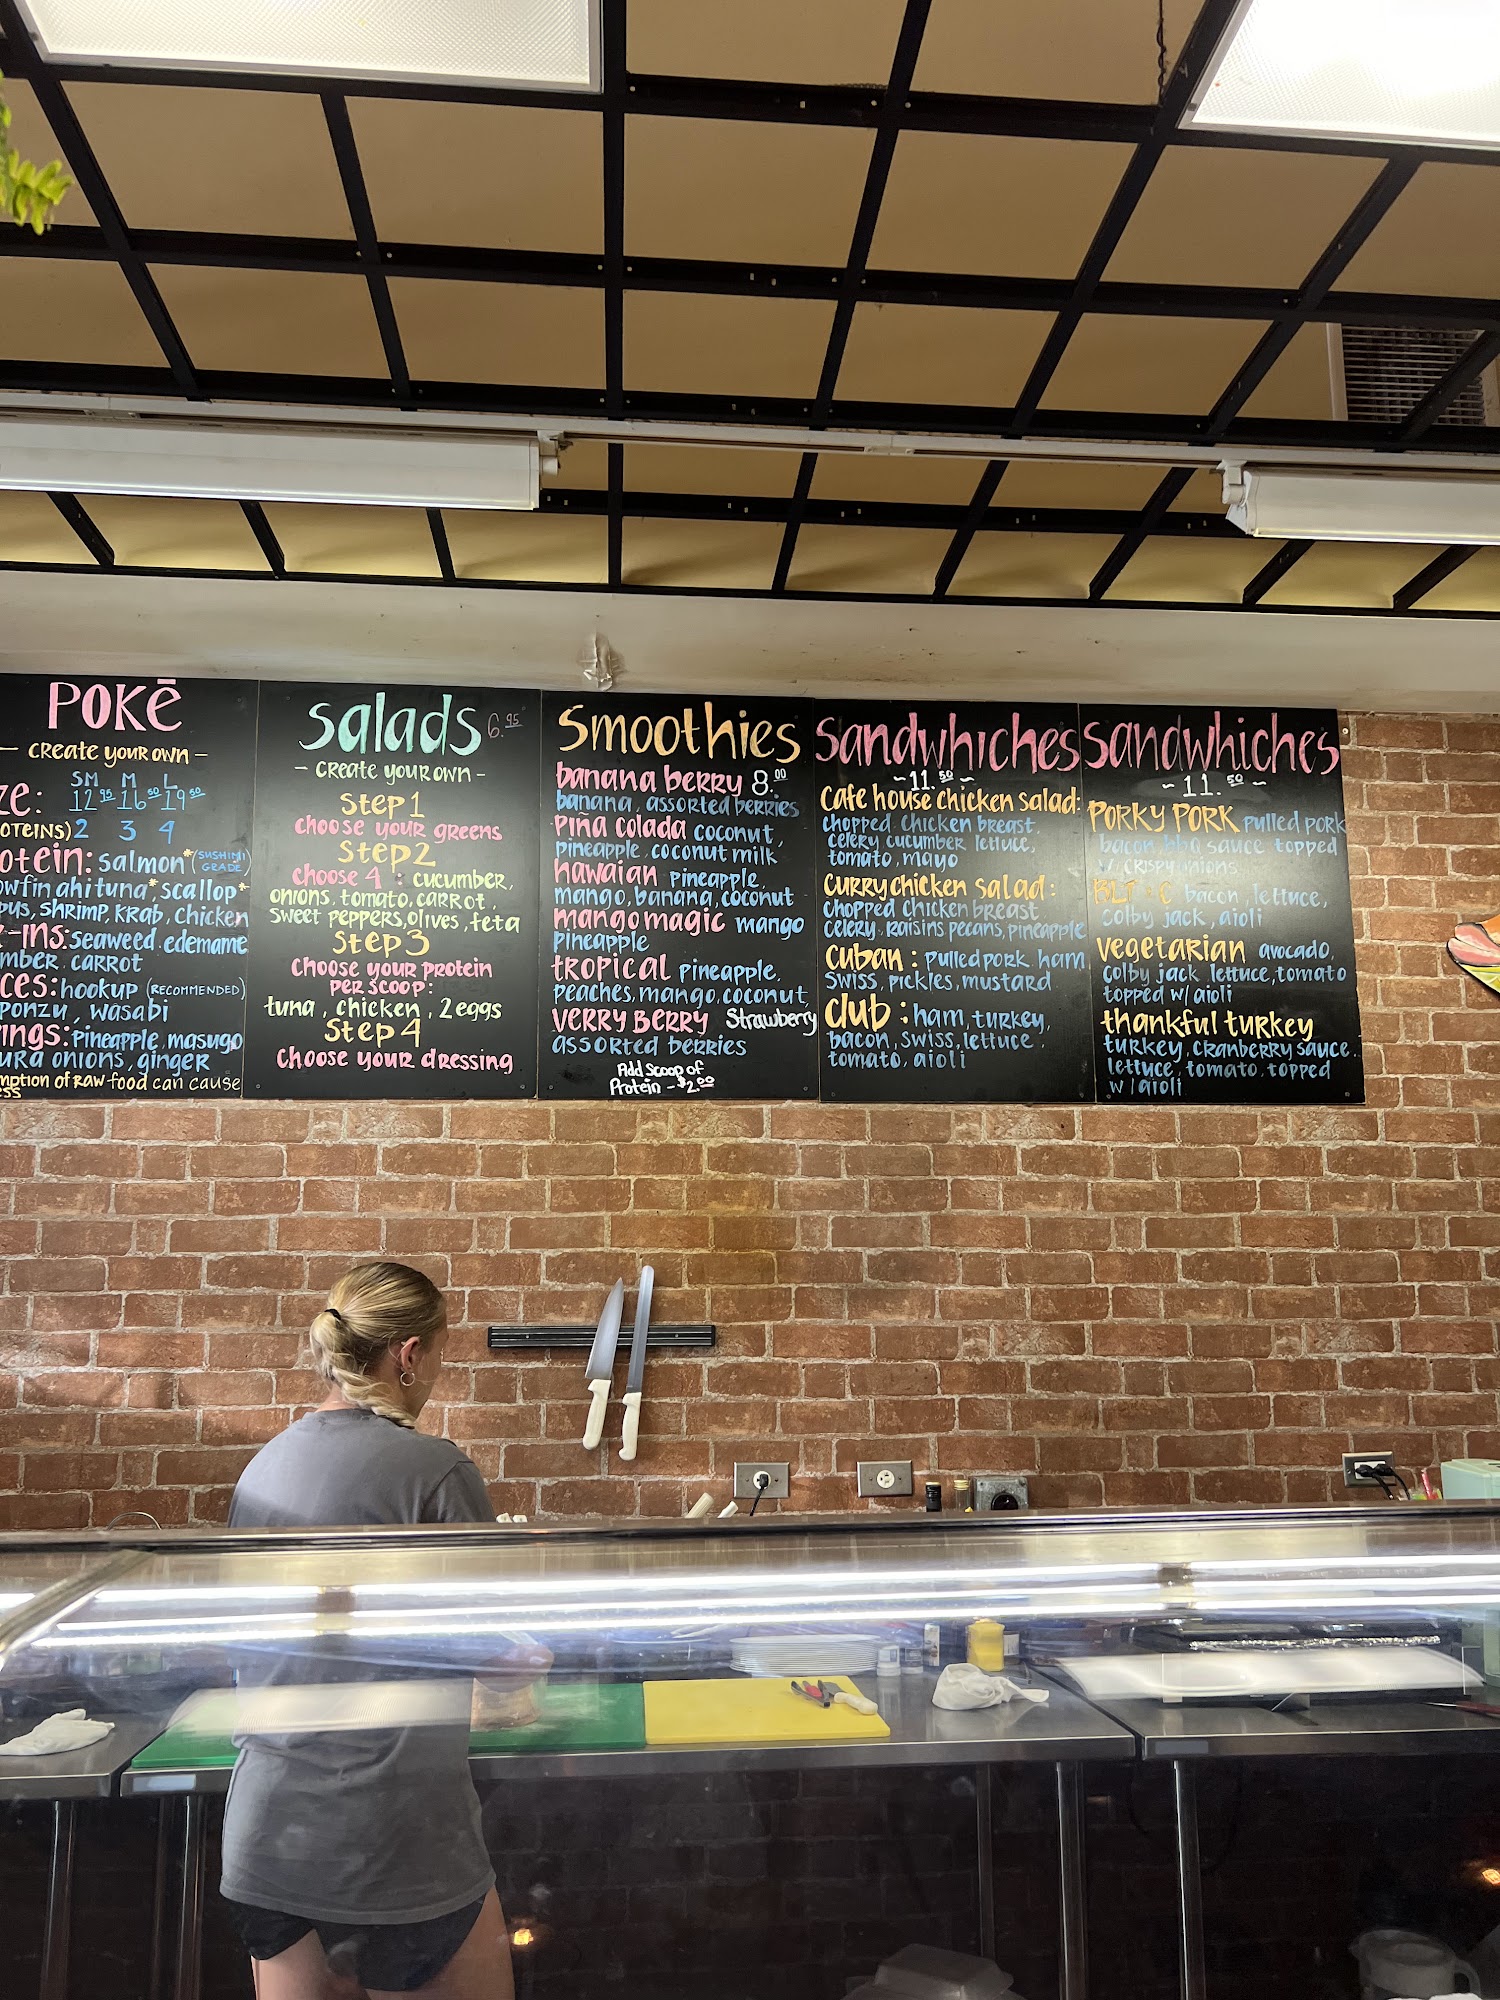 POKĒ
- CREATE YOUR OWN -
SM M L
ze: 12.95 16.50 19.50
OTEINS) 2 3 4
otein: salmon* (SUSHIMI GRADE)
owfin ahi tuna* scallop*
pus, shrimp, krab, chicken
x-ins: seaweed, edemame
mber, carrot
ces: hookup (RECOMMENDED)
ponzu, wasabi
ings: pineapple, masugo
ura onions, ginger
mption of raw food can cause
ess
Salads 6.95
- CREATE YOUR OWN -
Step 1
choose your greens
Step 2
choose 4: cucumber,
onions, tomato, carrot,
sweet peppers, olives, feta
Step 3
Choose your protein
per scoop:
tuna, chicken, 2 eggs
Step 4
Choose your dressing
Smoothies
banana berry 8.00
banana, assorted berries
Piña colada coconut,
pineapple, coconut milk
hawaiian pineapple,
mango, banana, coconut
mango magic mango
pineapple
tropical pineapple,
peaches, mango, coconut,
VERRY BERRY Strawberry
assorted berries
Add Scoop of
Protein - $2.00
Sandwhiches
~11.50~
Cafe house chicken salad:
chopped chicken breast,
celery cucumber lettuce,
tomato, mayo
Curry chicken salad:
chopped chicken breast
celery, raisins pecans, pineapple
Cuban: pulled pork, ham
swiss, pickles, mustard
Club: ham, turkey,
bacon, swiss, lettuce,
tomato, aioli
Sandwhiches
~11.50~
PORKY PORK pulled pork
bacon, bbq sauce topped
w/ crispy onions
BLT + C bacon, lettuce,
colby jack, aioli
vegetarian avocado,
colby jack, lettuce, tomato
topped w/ aioli
thankful turkey
turkey, cranberry sauce,
lettuce, tomato, topped
w/ aioli